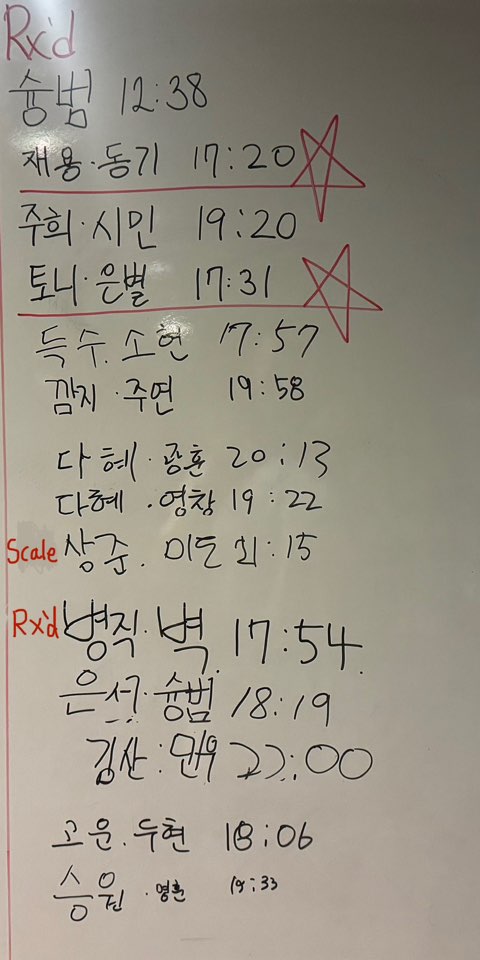 Rx'd
슝범 12:38
재용·동기 17:20
주희·시민 19:20
토니·은별 17:31
득수·소현 17:57
깜지·주연 19:58
다혜·광훈 20:13
다혜·영창 19:22
Scale 상준. 미도 :15
Rx'd 병직·벽 17:54
은서·슝범 18:19
김산:민우 22:00
고운·두현 18:06
승원·영훈 19:33